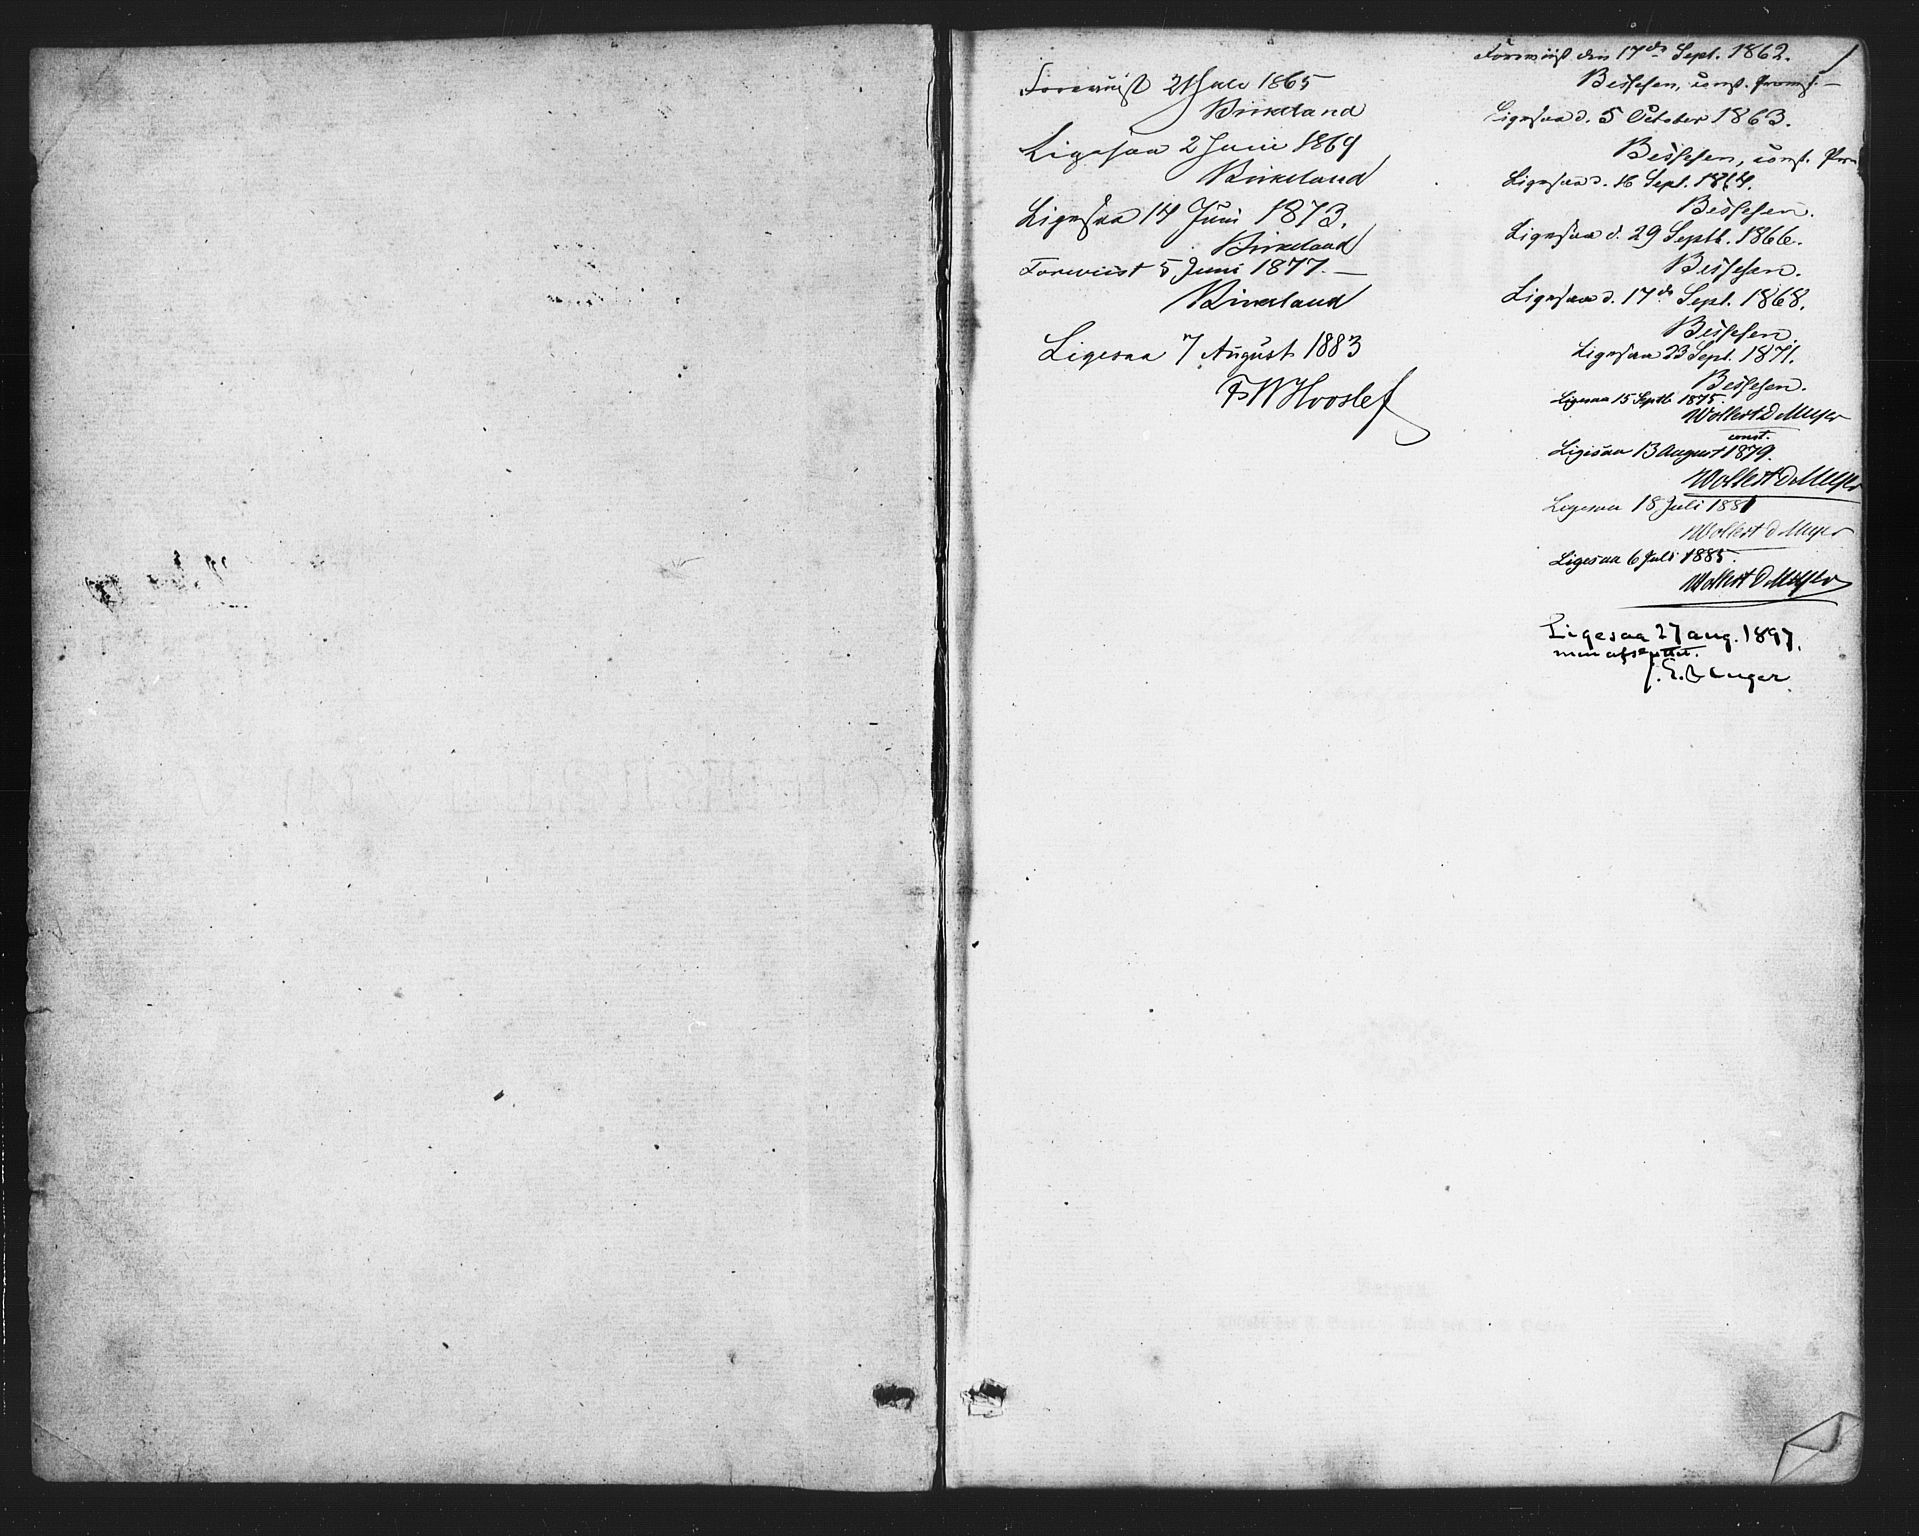 Foreviist 21 Juli 1865
Birkeland
Ligesaa 2 Juni 1869
Birkeland
Ligesaa 14 Juni 1873.
Birkeland
Foreviist 5 Juni 1877. —
Birkeland
Ligesaa 7 August 1883
1
Foreviist den 17de Sept. 1862.
Bessesen, const.
Ligesaa d. 5 October 1863.
Bessesen, const.
Ligesaa d. 16 Sept. 1864.
Bessesen.
Ligesaa d. 29 Septb. 1866.
Bessesen.
Ligesaa d. 17de Sept. 1868.
Bessesen.
Ligesaa 23 Sept. 1871.
Bessesen.
Ligesaa 15 Septb 1875.
Wollert D Meyer
const.
Ligesaa 13 August 1879.
Wollert D Meyer
Ligesaa 18 Juli 1881
Wollert d Meyer
Ligesaa 6 Juli 1885.
Wollert D Meyer
Ligesaa 27 aug. 1897,
men afsluttet.